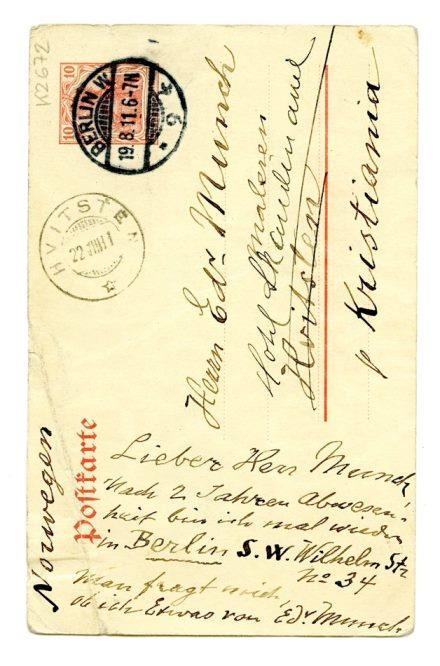 K2672
10
10
BERLIN W.
19.8.11.6-7N
* 5 *
HVITSTEN
22 VIII 11
Herrn Edv Munch
maleren
Hotel Skandinavel
Hvitsten
p Kristiania
Norwegen
Postkarte
Lieber Herr Munch
Nach 2 Jahren Abwesen-
heit bin ich mal wieder
in Berlin S.W. Wilhelm Str
No 34
Man fragt mich,
ob ich Etwas von Edv. Munch